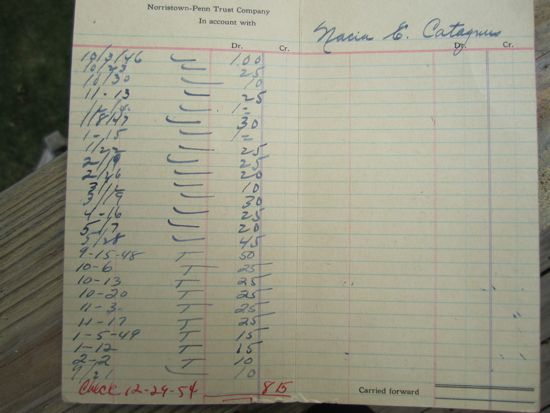 Norristown-Penn Trust Company
In account with
E. Catagnus
Dr. Cr. Dr. Cr.
10/3/46 100
10/23 25
10/30 10
11-13 25
1-
1/8/47 30
1-15 1-
1/22 25
2/19 25
2/26 20
10
3/19 30
4-16 25
5/7 20
5/28 45
9-15-48 T 50
10-6 T 25
10-13 T 25
10-20 T 25
11-3 T 25
11-17 T 25
1-5-49 T 15
1-12 T 15
2-2 T 10
9/21 T 10
Check 12-24-54 815
Carried forward